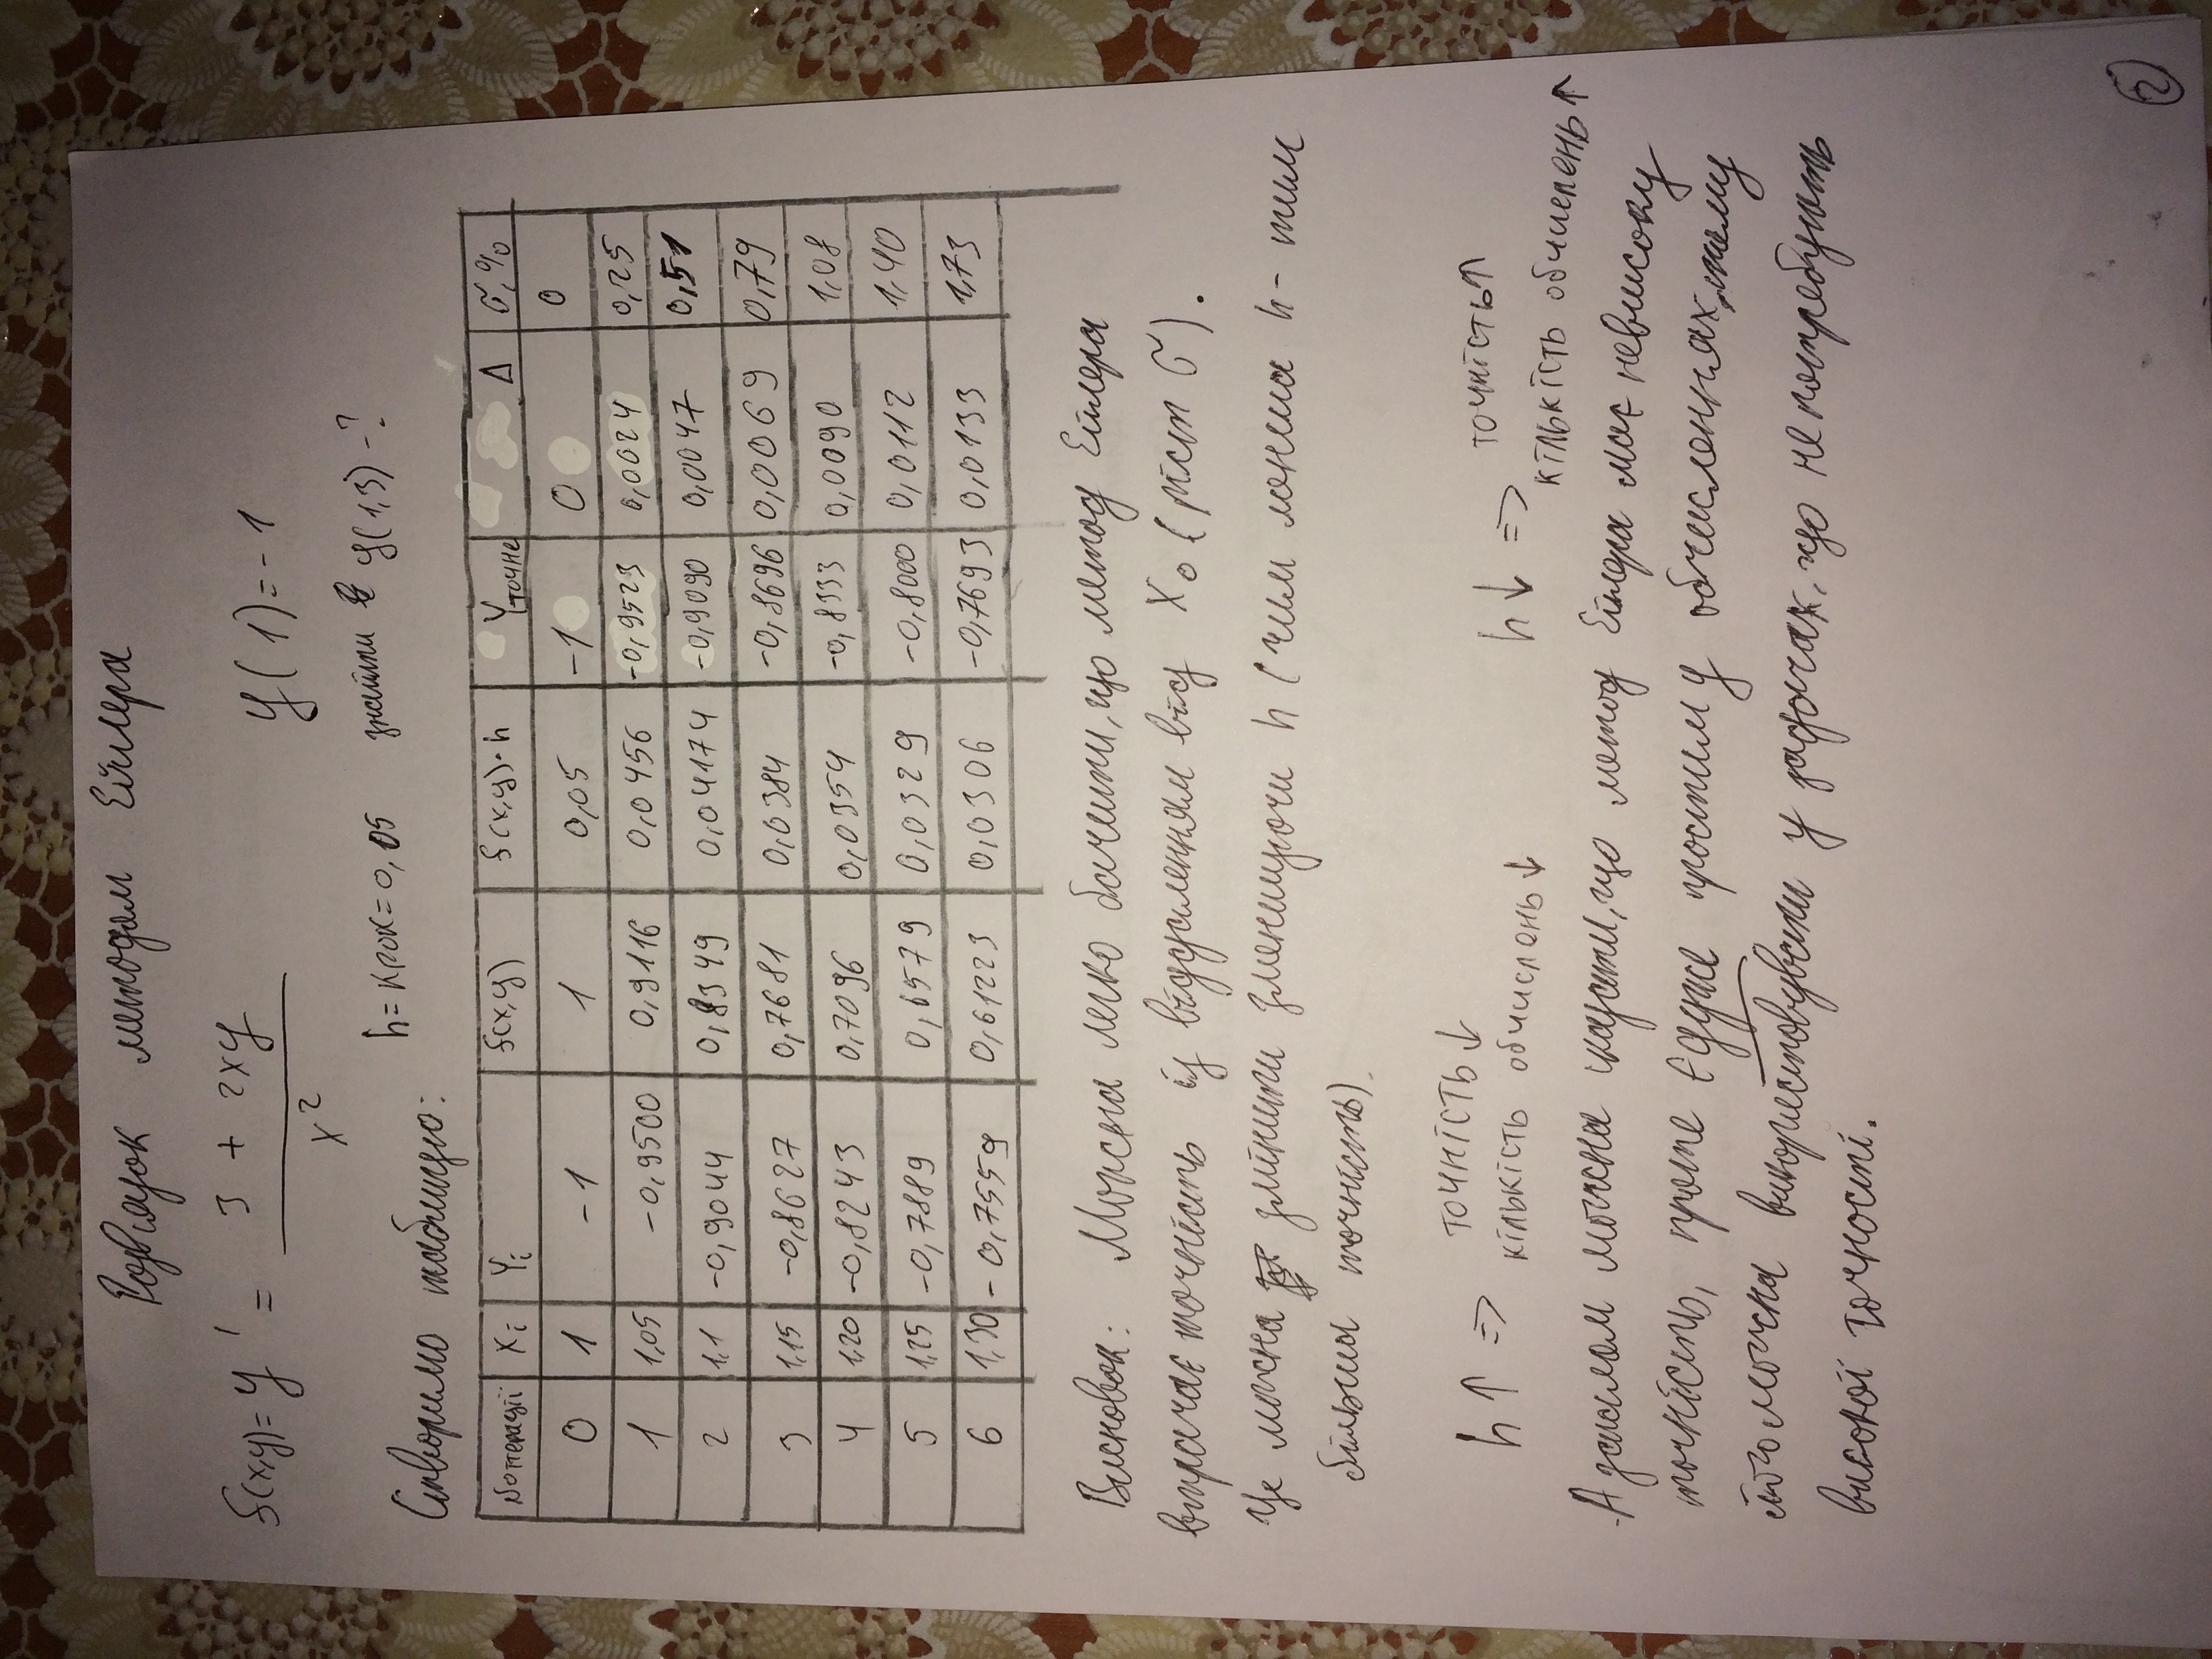 Розв'язок методом Ейлера
f(x,y) = y' = (3 + 2xy) / x²    y(1) = -1
h = крок = 0,05    знайти y(1,3) - ?
Створимо таблицю:
№ ітерації Xi Yi f(x,y) f(x,y)·h Yточне Δ σ,%
0 1 -1 1 0,05 -1 0 0
1 1,05 -0,9500 0,9116 0,0456 -0,9523 0,0024 0,25
2 1,1 -0,9044 0,8349 0,04174 -0,9090 0,0047 0,51
3 1,15 -0,8627 0,7681 0,0384 -0,8696 0,0069 0,79
4 1,20 -0,8243 0,7096 0,0354 -0,8333 0,0090 1,08
5 1,25 -0,7889 0,6579 0,0329 -0,8000 0,0112 1,40
6 1,30 -0,7559 0,61223 0,0306 -0,7693 0,0133 1,73
Висновок: Можна легко бачити, що метод Ейлера
втрачає точність із віддаленням від X₀ (ріст σ).
Це можна змінити зменшуючи h (чим менша h - тим
більша точність).
h↑ => точність↓ кількість обчислень↓
h↓ => точність↑ кількість обчислень↑
А загалом можна сказати, що метод Ейлера має невисоку
точність, проте є дуже простим у обчисленнях, тому
його можна використовувати у задачах, що не потребують
високої точності.
2